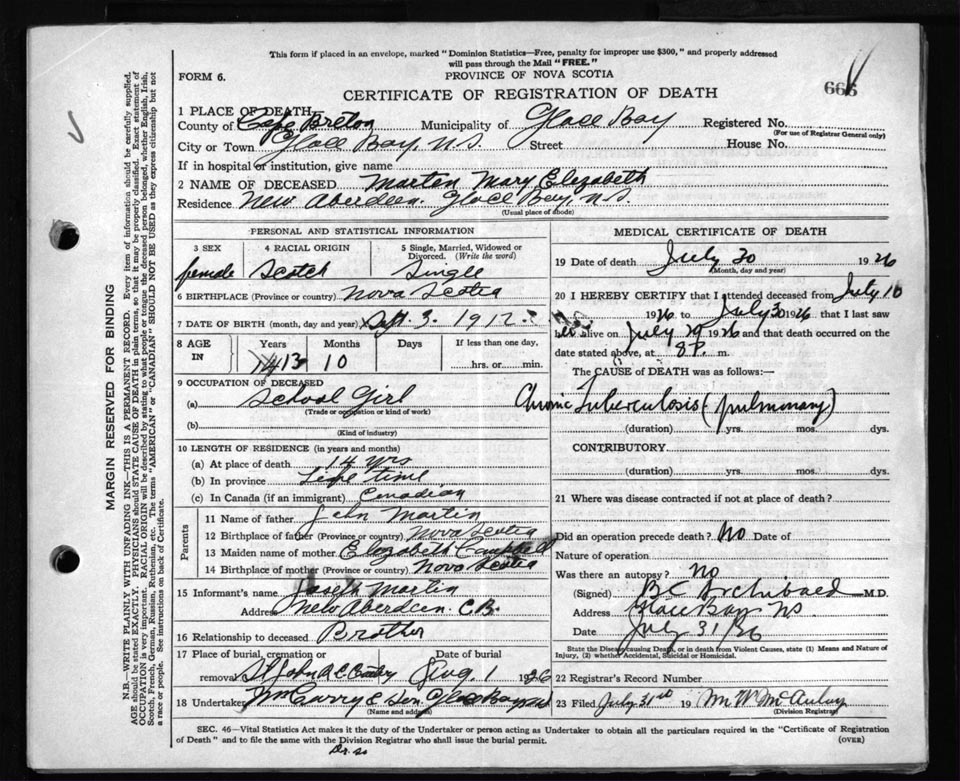 This form if placed in an envelope, marked "Dominion Statistics—Free, penalty for improper use $300," and properly addressed
will pass through the Mail "FREE."
FORM 6. PROVINCE OF NOVA SCOTIA
666
CERTIFICATE OF REGISTRATION OF DEATH
1 PLACE OF DEATH
County of Cape Breton Municipality of Glace Bay Registered No.
(For use of Registrar General only)
City or Town Glace Bay, N.S. Street House No.
If in hospital or institution, give name
2 NAME OF DECEASED Marten Mary Elizabeth
Residence New Aberdeen. Glace Bay, N.S.
(Usual place of abode)
PERSONAL AND STATISTICAL INFORMATION
3 SEX 4 RACIAL ORIGIN 5 Single, Married, Widowed or
Divorced. (Write the word)
female Scotch Single
6 BIRTHPLACE (Province or country) Nova Scotia
7 DATE OF BIRTH (month, day and year) Sept. 3. 1912
8 AGE IN Years Months Days If less than one day,
13 10 hrs. or min.
9 OCCUPATION OF DECEASED
(a) School Girl
(Trade or occupation or kind of work)
(b)
(Kind of industry)
10 LENGTH OF RESIDENCE (in years and months)
(a) At place of death 14 yrs
(b) In province Life time
(c) In Canada (if an immigrant) Canadian
Parents
11 Name of father John Martin
12 Birthplace of father (Province or country) Nova Scotia
13 Maiden name of mother Elizabeth Campbell
14 Birthplace of mother (Province or country) Nova Scotia
15 Informant's name Joseph Martin
Address New Aberdeen C.B.
16 Relationship to deceased Brother
17 Place of burial, cremation or Date of burial
removal St John R C Aug 1 1926
18 Undertaker
(Name and address)
MEDICAL CERTIFICATE OF DEATH
19 Date of death July 30 1926
(Month, day and year)
20 I HEREBY CERTIFY that I attended deceased from July 10
1926 to July 30 1926 that I last saw
her alive on July 29 1926 and that death occurred on the
date stated above, at 8 P. m.
The CAUSE of DEATH was as follows:—
Chronic Tuberculosis (pulmonary)
(duration) yrs. mos. dys.
CONTRIBUTORY
(duration) yrs. mos. dys.
21 Where was disease contracted if not at place of death?
Did an operation precede death? No Date of
Nature of operation
Was there an autopsy? No
(Signed) B C Archibald M.D.
Address Glace Bay NS
Date July 31/26
State the Disease causing Death, or in death from Violent Causes, state (1) Means and Nature of
Injury, (2) whether Accidental, Suicidal or Homicidal.
22 Registrar's Record Number
23 Filed July 31 19
(Division Registrar)
SEC. 46—Vital Statistics Act makes it the duty of the Undertaker or person acting as Undertaker to obtain all the particulars required in the "Certificate of Registration
of Death" and to file the same with the Division Registrar who shall issue the burial permit.
(OVER)
MARGIN RESERVED FOR BINDING
N.B.—WRITE PLAINLY WITH UNFADING INK—THIS IS A PERMANENT RECORD. Every item of information should be carefully supplied.
AGE should be stated EXACTLY. PHYSICIANS should STATE CAUSE OF DEATH in plain terms, so that it may be properly classified. Exact statement of
OCCUPATION is very important. RACIAL ORIGIN will be described by stating to what people or tongue the deceased person belonged, whether English, Irish,
Scotch, French, German, Russian, Ruthenian, etc. The terms "AMERICAN" or "CANADIAN" SHOULD NOT BE USED as they express citizenship but not
a race or people. See instructions on back of Certificate.